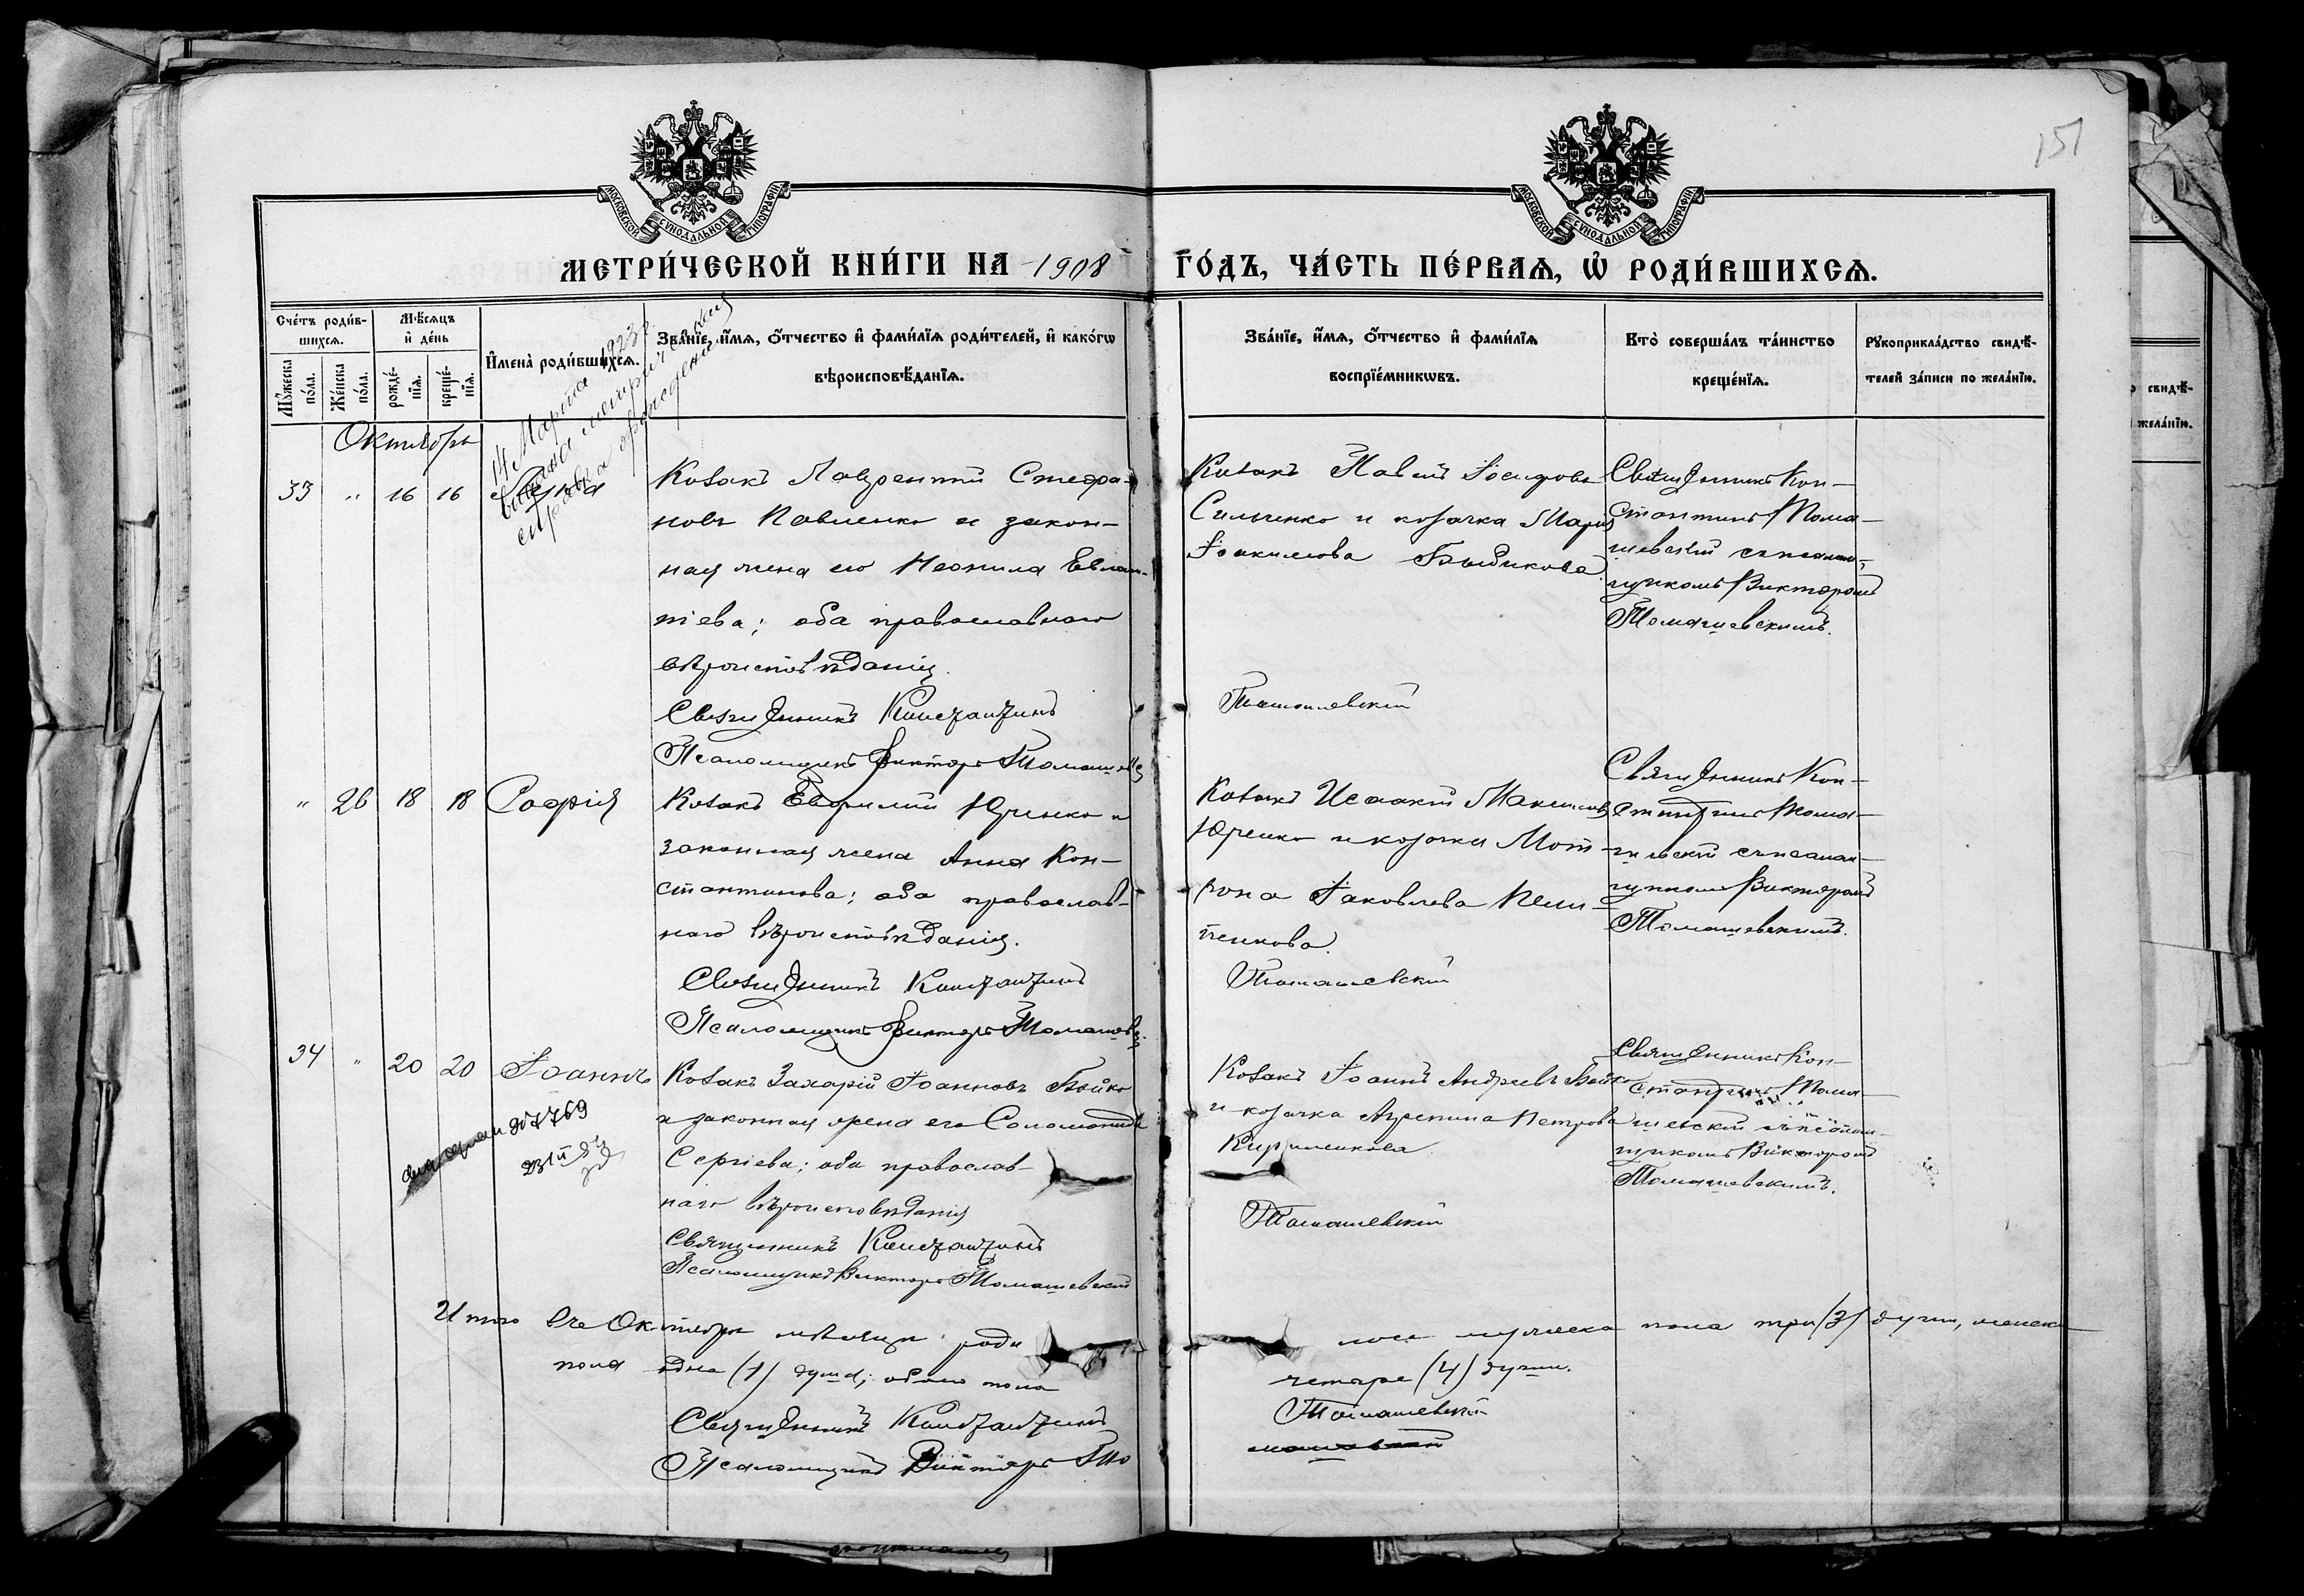 151
МОСКОВСКОЙ СѴНОДАЛЬНОЙ ТИПОГРАФІИ
МОСКОВСКОЙ СѴНОДАЛЬНОЙ ТИПОГРАФІИ
МЕТРИ́ЧЕСКОЙ КНИ́ГИ НА 1908
ГО́ДЪ, ЧА́СТЬ ПЕ́РВАѦ, Ѡ҆ РОДИ́ВШИХСѦ.
Сче́тъ роди́в-
шихсѧ.
Мꙋ́жеска по́ла.
Же́нска по́ла.
Мѣ́сѧцъ
и҆ де́нь
рожде́-
нїѧ.
креще́-
нїѧ.
И҆мена̀ роди́вшихсѧ.
Зва́нїе, и҆́мѧ, ѻ҆́тчество и҆ фами́лїѧ роди́телей, и҆ како́гѡ
вѣроисповѣ́данїѧ.
Зва́нїе, и҆́мѧ, ѻ҆́тчество и҆ фами́лїѧ
воспрїе́мникѡвъ.
Кто̀ соверша́лъ та́инство
креще́нїѧ.
Рꙋкоприкла́дство свидѣ́-
телей за́писи по жела́нїю.
14 Марта 1923 г.
выдана метрическая
справка о рождении
Октябрь
33 " 16 16
Козакъ Лаврентій Стефа-
новъ Павленко и закон-
ная жена его Неонила Евлам-
піева; оба православнаго
вѣроисповѣданія.
Священникъ Константинъ
Псаломщикъ Викторъ Томашевс
Козакъ Павелъ Іосифовъ
Сильченко и козачка Марія
Іоакимова Быдикова.
Томашевскій
Священникъ Кон-
стантинъ Тома-
шевскій съ псалом-
щикомъ Викторомъ
Томашевскимъ.
" 26 18 18 Софія
Козакъ Евфимій Юренко и
законная жена Анна Кон-
стантинова; оба православ-
наго вѣроисповѣданія.
Священникъ Константинъ
Псаломщикъ Викторъ Томашевс
Козакъ Исаакій Максимовъ
Юренко и козачка Мот-
рона Іаковлева
Томашевскій
Священникъ Кон-
стантинъ Тома-
шевскій съ псалом-
щикомъ Викторомъ
Томашевскимъ.
34 " 20 20 Іоаннъ
7769
Козакъ Захарій Іоанновъ Бойко
и законная жена его Соломонида
Сергіева; оба православ-
наго вѣроисповѣданія
Священникъ Константинъ
Псаломщикъ Викторъ Томашевскій
Козакъ Іоаннъ Андреевъ Бойко
и козачка Агрепина Петрова
Кириленкова
Томашевскій
Священникъ Кон-
стантинъ Тома-
шевскій съ псалом-
щикомъ Викторомъ
Томашевскимъ.
Итого въ Октябрѣ мѣсяцѣ роди
лось мужеска пола три (3) души, женска
пола одна (1) душа; обоего пола
четыре (4) души.
Священникъ Константинъ
Томашевскій
Псаломщикъ Викторъ То
машевскій
свидѣ́-
жела́нїю.